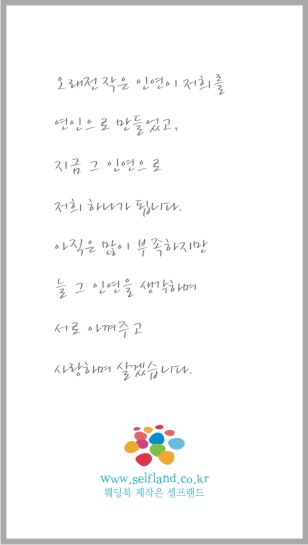 오래전 작은 인연이 저희를
연인으로 만들었고,
지금 그 인연으로
저희 하나가 됩니다.
아직은 많이 부족하지만
늘 그 인연을 생각하며
서로 아껴주고
사랑하며 살겠습니다.
www.selfland.co.kr
웨딩북 제작은 셀프랜드